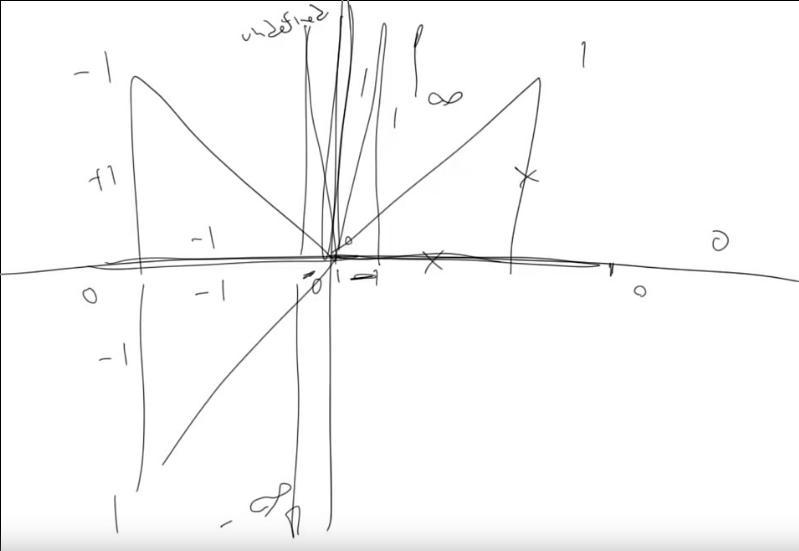 undefined
-1
1
1
∞
1
+1
x
-1
0
0
x
0
-1
0
0
-1
-∞
1